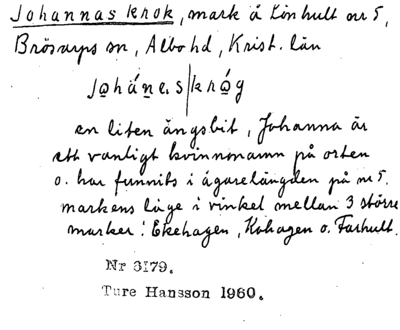 Johannas krok, mark å Linhult nr 5,
Brösarps sn, Albo hd, Krist. län
johánes|króg
en liten ängsbit, Johanna är
ett vanligt kvinnonamn på orten
o. har funnits i ägarelängden på nr 5.
markens läge i vinkel mellan 3 större
marker: Ekehagen, Kohagen o. Farhult.
Nr 3179.
Ture Hansson 1960.